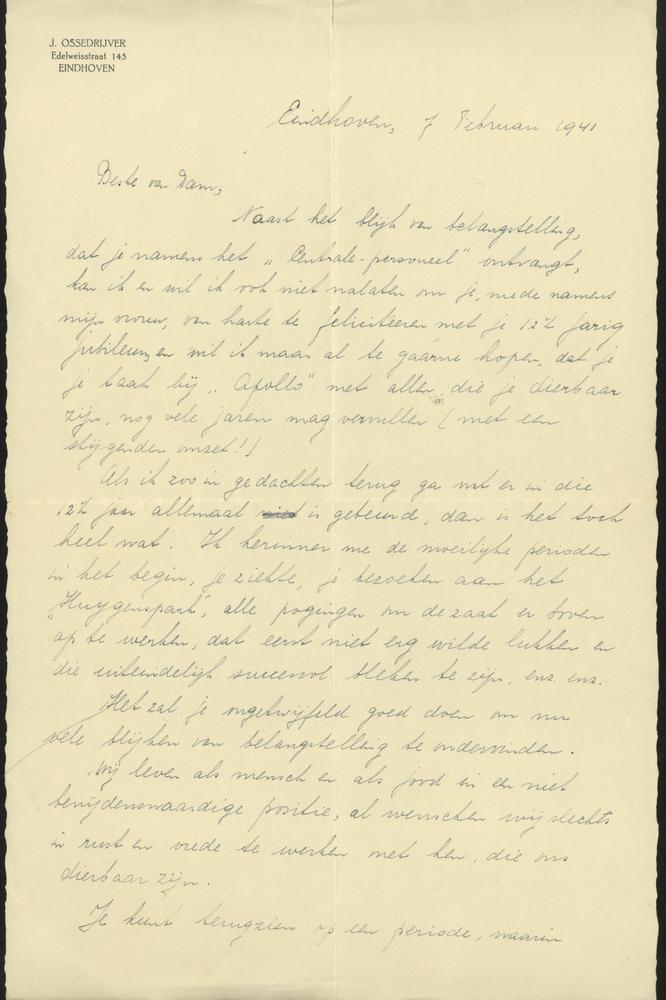 J. OSSEDRIJVER
Edelweisstraat 145
EINDHOVEN
Eindhoven, 7 Februari 1941
Beste van Dam,
Naast het blijk van belangstelling,
dat je namens het „Centrale-personeel" ontvangt,
kan ik en wil ik ook niet nalaten om je, mede namens
mijn vrouw, van harte te feliciteeren met je 12½ jarig
jubileum, en wil ik maar al te gaarne hopen, dat je
je taak bij „Apollo" met allen, die je dierbaar
zijn, nog vele jaren mag vervullen (met een
stijgenden omzet!)
Als ik zoo in gedachten terug ga wat er in die
12½ jaar allemaal is gebeurd, dan is het toch
heel wat. Ik herinner me de moeilijke perioden
in het begin, je ziekte, je bezoeken aan het
„Huygenspark", alle pogingen om de zaak er boven
op te werken, dat eerst niet erg wilde lukken en
die uiteindelijk succesvol bleken te zijn, enz. enz.
Het zal je ongetwijfeld goed doen om nu
vele blijken van belangstelling te ondervinden.
Wij leven als mensch en als jood in een niet
benijdenswaardige positie, al wenschen wij slechts
in rust en vrede te werken met hen, die ons
dierbaar zijn.
Je kunt terugzien op een periode, waarin